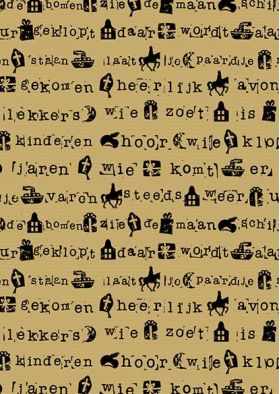 de bomen zie de maan schij
ur geklopt daar wordt a
n staan laat 't paardje
gekomen heerlijk avon
lekkers wie zoet is
kinderen hoor wie klo
jaren wie komt er
varen steeds weer
de bomen zie de maan schij
ur geklopt daar wordt aa
n staan laat 't paardje
gekomen heerlijk avon
lekkers wie zoet is
kinderen hoor wie klo
jaren wie komt er